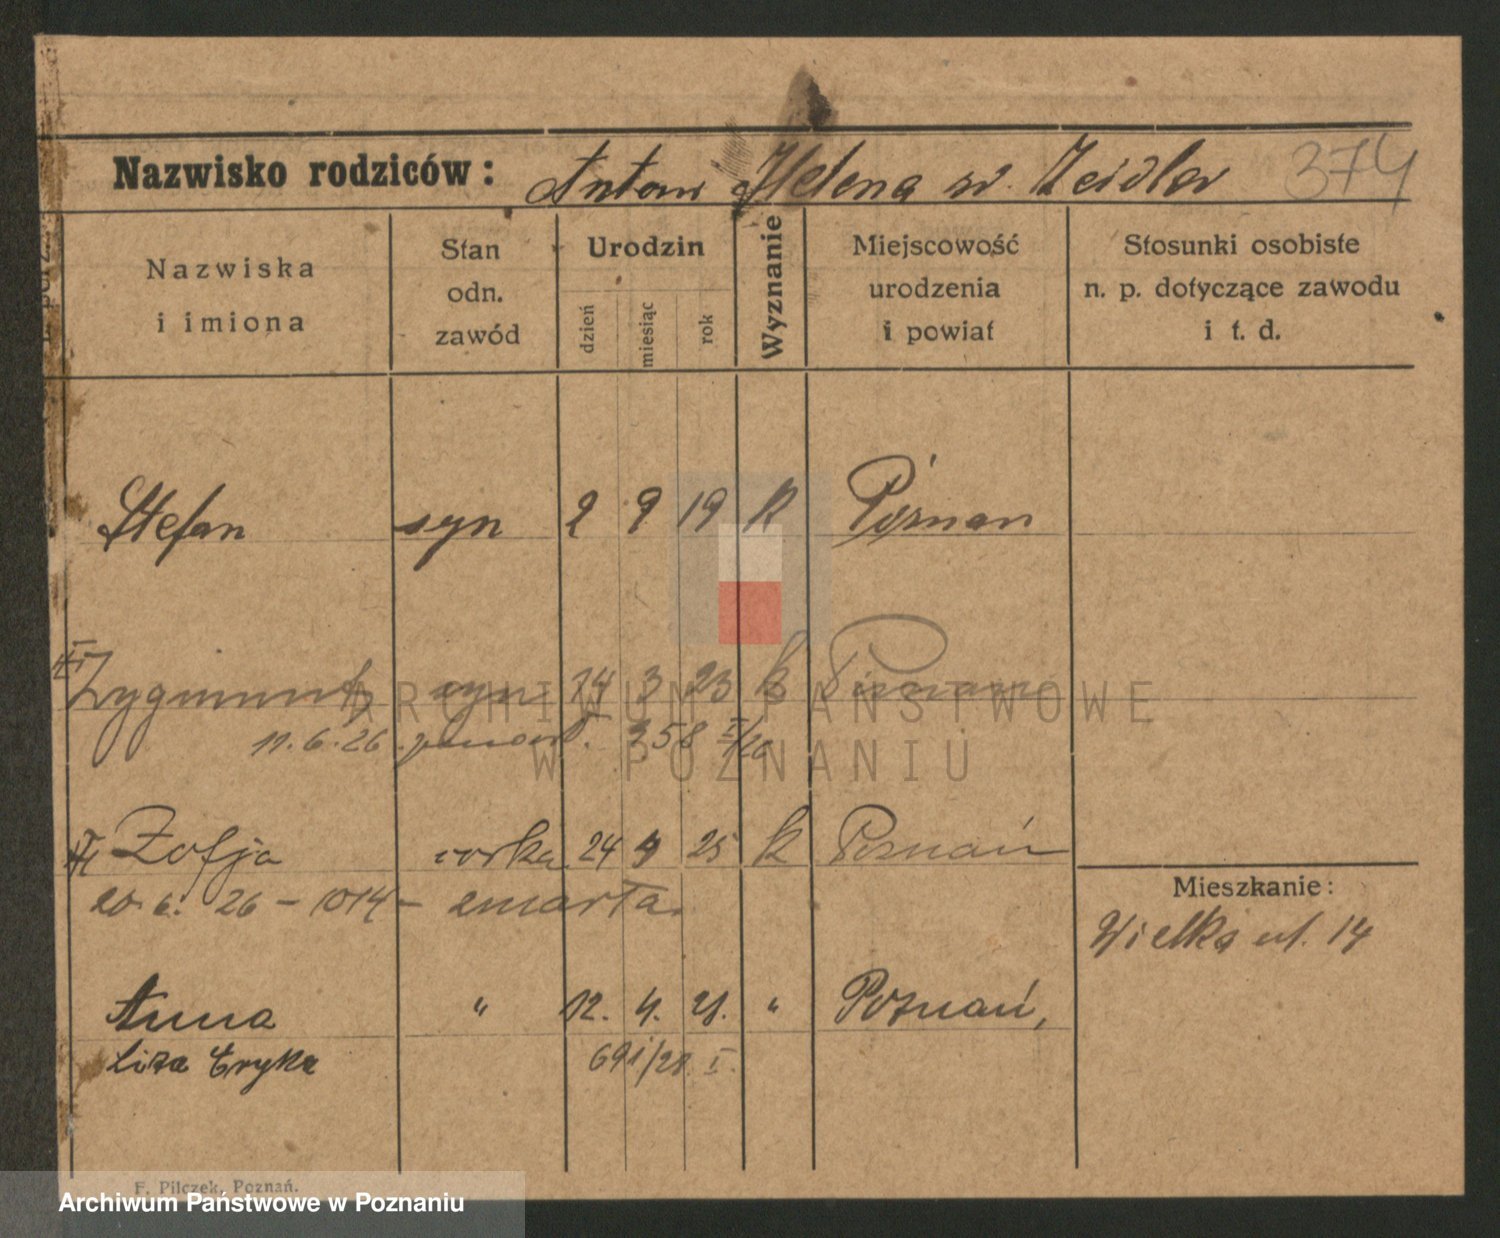 Nazwisko rodziców: Antoni Helena ur. Zeidler 374
Nazwiska i imiona
Stan odn. zawód
Urodzin
dzień miesiąc rok
Wyznanie
Miejscowość urodzenia i powiat
Stosunki osobiste n. p. dotyczące zawodu i t. d.
Stefan syn 2 9 19 k Poznan
Zygmunt syn 14 3 23 k
11.6.26 358 I/26
Zofja corka 24 4 25 k Poznań
20.6.26 - 1014 - zmarła
Mieszkanie:
Wielka ul. 14
Anna " 12. 4. 21. " Poznań,
Liza Eryka 691/21. I.
ARCHIWUM PAŃSTWOWE
W POZNANIU
F. Pilczek, Poznań.
Archiwum Państwowe w Poznaniu